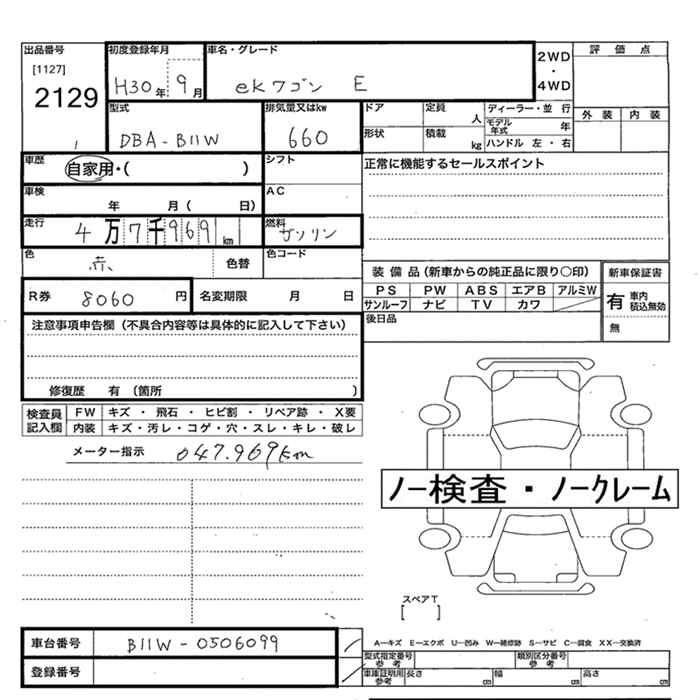 出品番号 初度登録年月 車名・グレード 2WD・4WD 評価点
[1127]
2129 H30年9月 ekワゴン E
型式 排気量又はkw ドア 定員 人 ディーラー・並行 外装 内装
DBA-B11W 660 形状 積載 kg モデル年式 年 ハンドル 左・右
車歴 自家用・( ) シフト 正常に機能するセールスポイント
車検 年 月( 日) AC
走行 4万7千969km 燃料 ガソリン
色 赤 色替 色コード
装備品(新車からの純正品に限り○印) 新車保証書
R券 8060円 名変期限 月 日 PS PW ABS エアB アルミW 有 車内積込無効
サンルーフ ナビ TV カワ
注意事項申告欄(不具合内容等は具体的に記入して下さい) 後日品 無
修復歴 有 (箇所 )
検査員記入欄 FW キズ・飛石・ヒビ割・リペア跡・X要
内装 キズ・汚レ・コゲ・穴・スレ・キレ・破レ
メーター指示 047.969km
ノー検査・ノークレーム
スペアT
[ ]
車台番号 B11W-0506099 A－キズ E－エクボ U－凹み W－補修跡 S－サビ C－腐食 XX－交換済
型式指定番号参考 類別区分番号参考
登録番号 車庫証明用参考 長さ cm 幅 cm 高さ cm